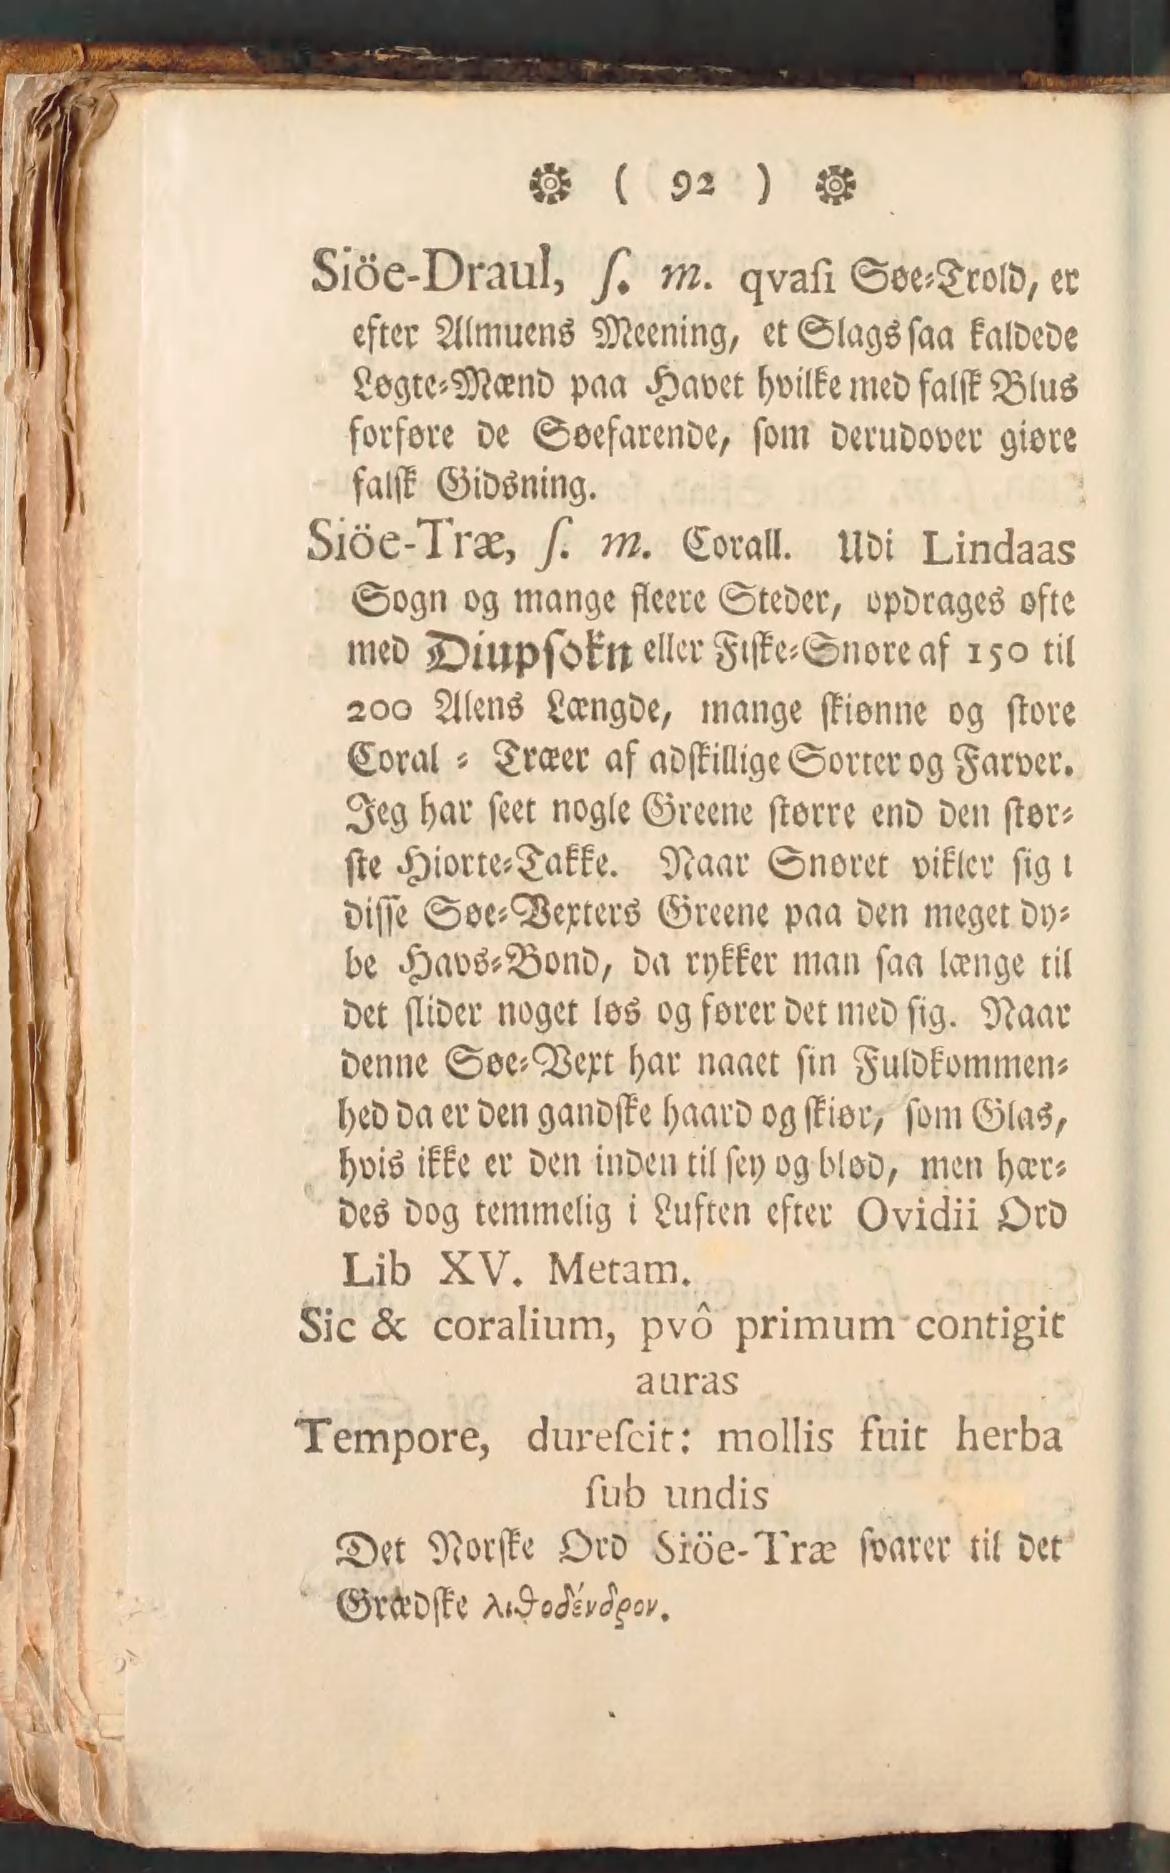 ( 92 )
Siöe-Draul, ſ. m. qvaſi Søe-Trold, er
efter Almuens Meening, et Slags ſaa kaldede
Løgte-Mænd paa Havet hvilke med falſk Blus
forføre de Søefarende, ſom derudover giøre
falſk Gidsning.
Siöe-Træ, ſ. m. Corall. Udi Lindaas
Sogn og mange fleere Steder, opdrages ofte
med Diupſokn eller Fiſke-Snøre af 150 til
200 Alens Længde, mange ſkiønne og ſtore
Coral - Træer af adſkillige Sorter og Farver.
Jeg har ſeet nogle Greene ſtørre end den ſtør-
ſte Hiorte-Takke. Naar Snøret vikler ſig i
diſſe Søe-Vexters Greene paa den meget dy-
be Havs-Bond, da rykker man ſaa længe til
det ſlider noget løs og fører det med ſig. Naar
denne Søe-Vext har naaet ſin Fuldkommen-
hed da er den gandſke haard og ſkiør, ſom Glas,
hvis ikke er den inden til ſey og blød, men hær-
des dog temmelig i Luften efter Ovidii Ord
Lib XV. Metam.
Sic & coralium, pvô primum contigit
auras
Tempore, dureſcit: mollis fuit herba
ſub undis
Det Norſke Ord Siöe-Træ ſvarer til det
Grædſke λιθοδένδρον.